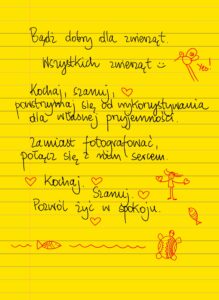 Bądź dobry dla zwierząt
Wszystkich zwierząt
Yeo!
Kochaj, szanuj,
powstrzymaj się od wykorzystywania
dla własnej przyjemności.
Zamiast fotografować,
połącz się z nim sercem.
Kochaj.
Szanuj.
Pozwól żyć w spokoju.